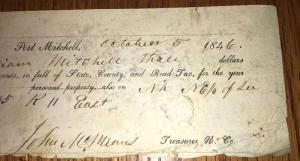 Port Mitchell, October 5 1846.
liam Mitchell Three dollars
cents, in full of State, County, and Road-Tax, for the year
personal property, also on N½ NE¼ of Sec
5 R 11 East
John McMeans Treasurer N. Co.